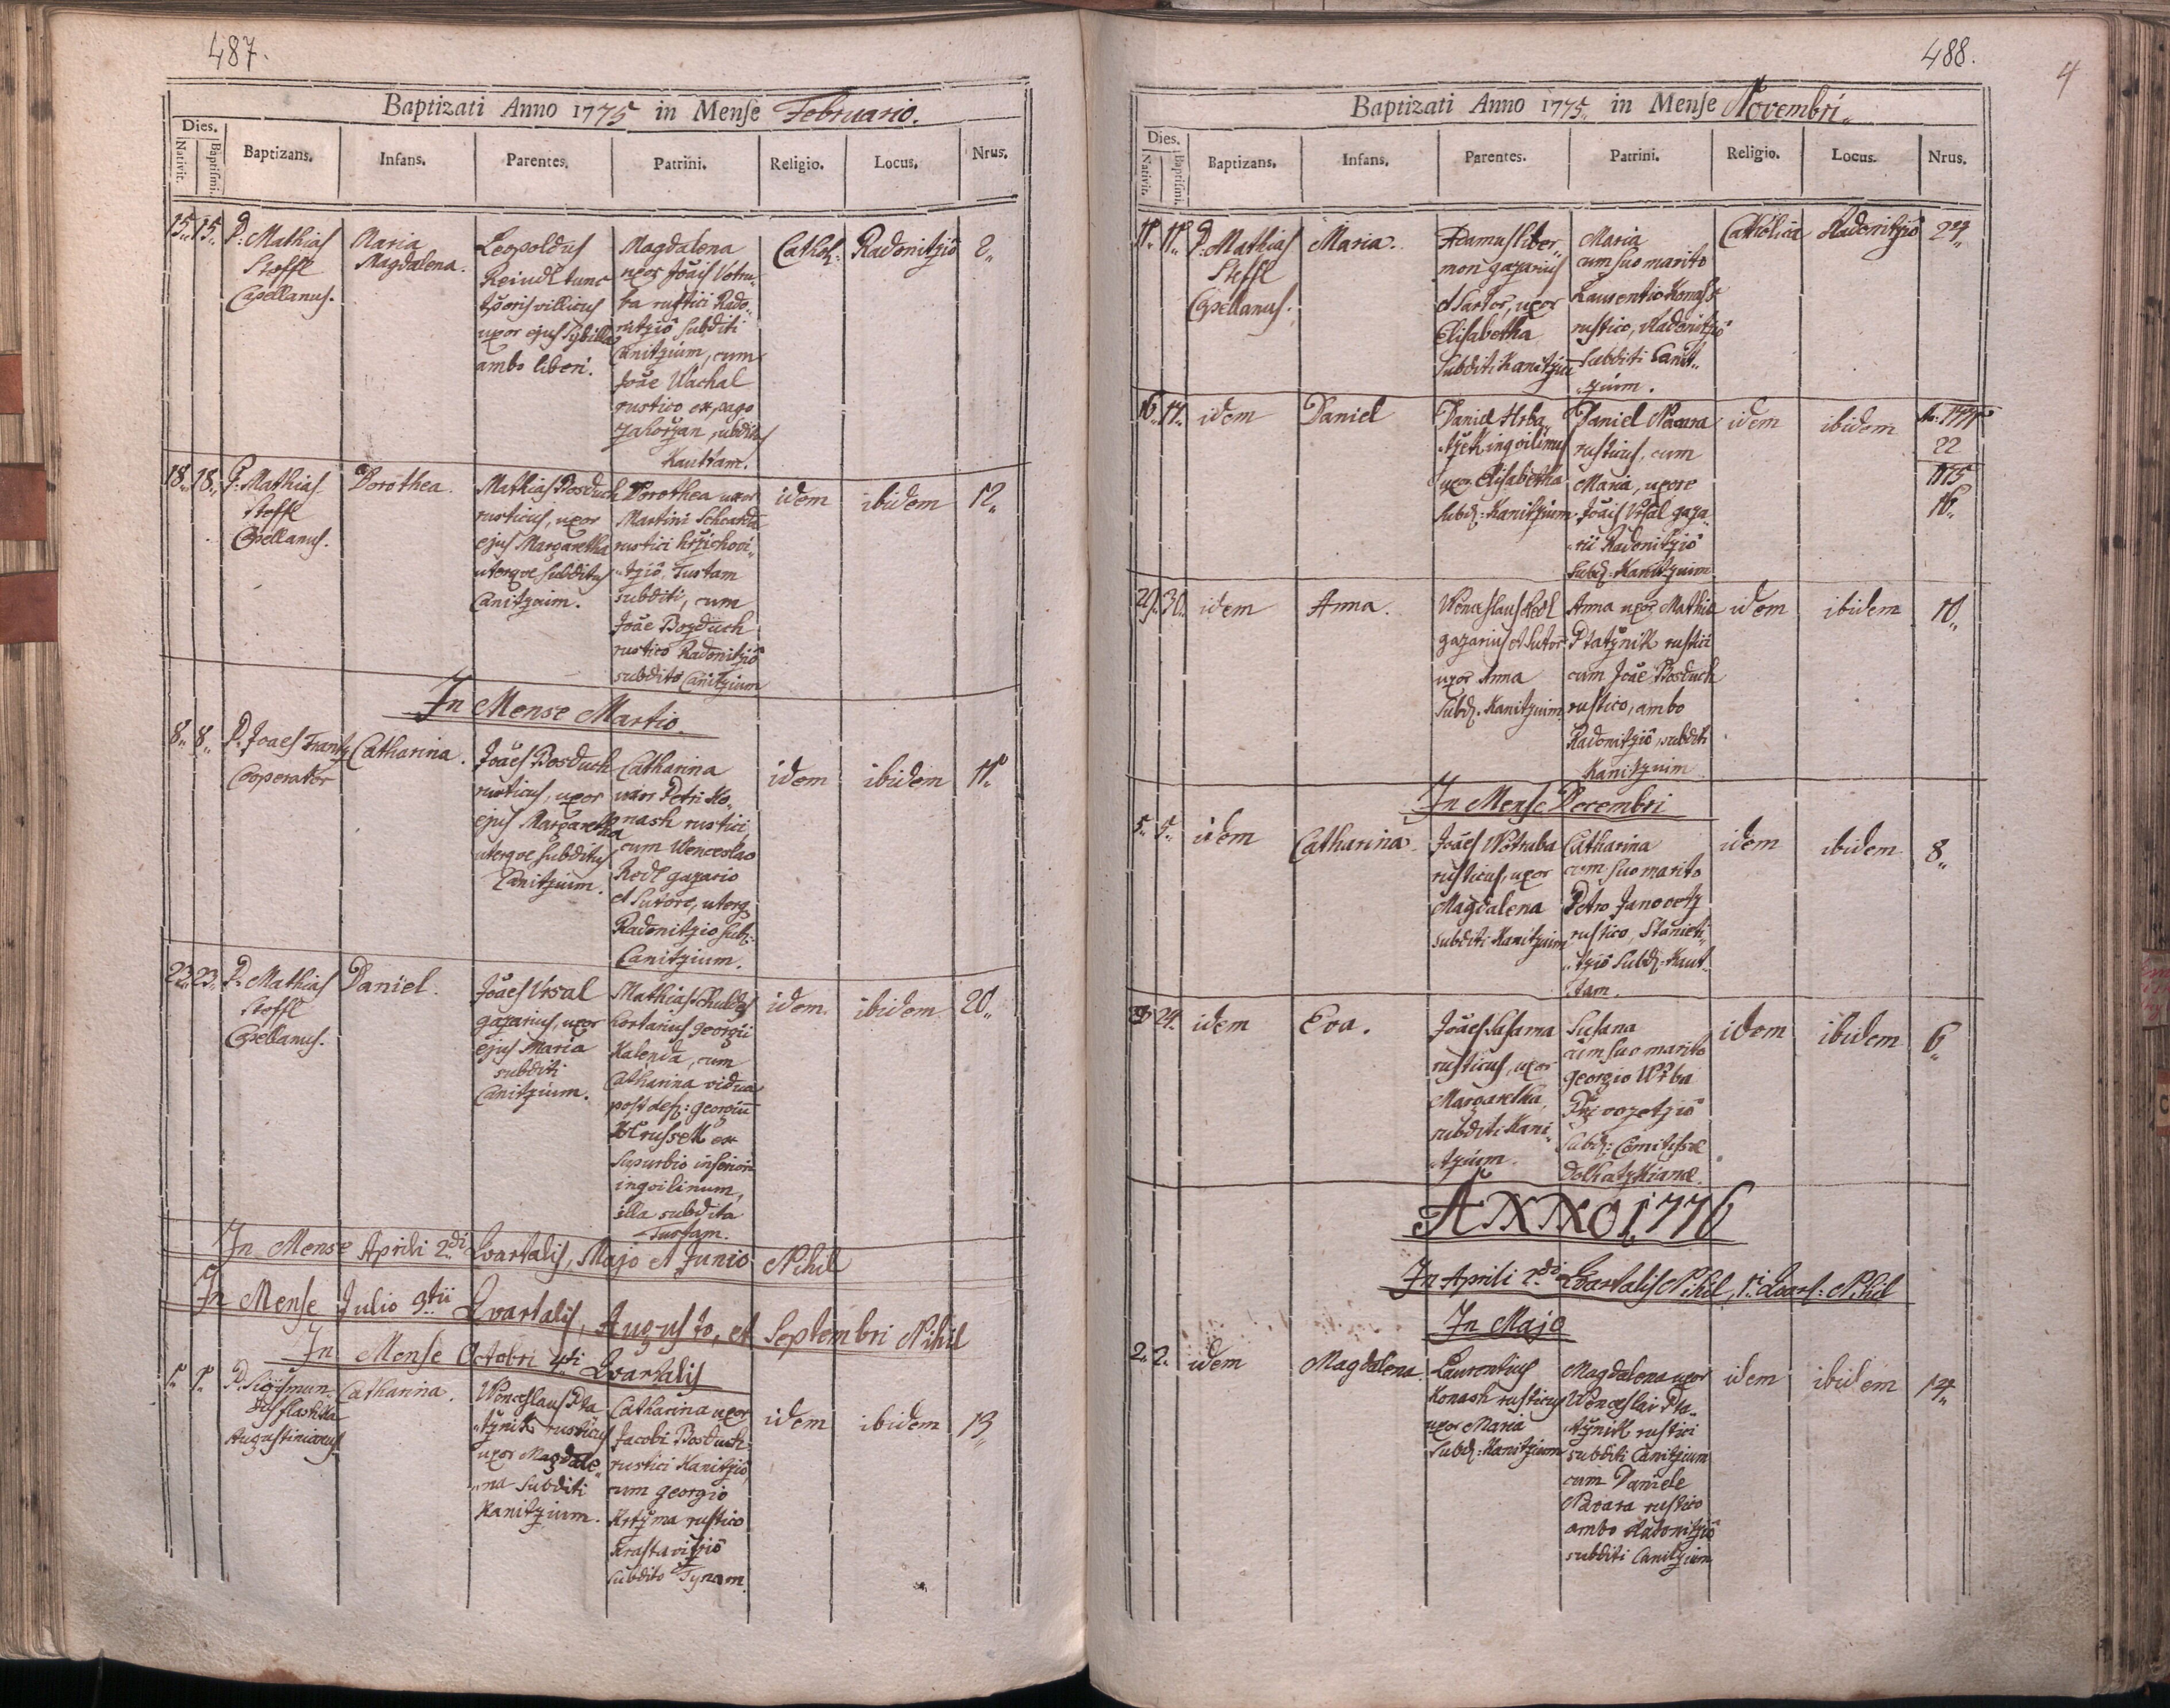 487.
Baptizati Anno 1775 in Mense Februario.
Dies.
Nativit. Baptismi. Baptizans. Infans. Parentes. Patrini. Religio. Locus. Nrus.
15. 15.
P: Mathias
Steffl
Capellanus.
Maria
Magdalena.
Leopoldus
Reindl tunc
villicus
uxor ejus Sybilla
ambo liberi.
Magdalena
uxor Joãis Votru„
ba rustici Rado„
nitzio subditi
Canitzium, cum
Joãe Wachal
rustico ex pago
Zahorzan, subditus
Kauttam.
Cathol:
Radonitzio
2„
18„ 18„
P: Mathias
Steffl
Capellanus.
Dorothea.
Mathias Bosduch
rusticus, uxor
ejus Margaretha
uterqve subditus
Canitzium.
Dorothea uxor
Martini
rustici
„tzio, Tustam
subditi, cum
Joãe Bozduch
rustico Radonitzio
subdito Canitzium
idem
ibidem
12„
In Mense Martio.
8„ 8„
P. Joães Frantz
Cooperator
Catharina.
Joães Bosduch
rusticus, uxor
ejus Margaretha
uterqve subditus
Canitzium.
Catharina
uxor Petri Ko„
nash rustici,
cum Wenceslao
Redl gazario
et Sutore, uterq
Radonitzio sub:
Canitzium.
idem
ibidem
11.
23„ 23„
P: Mathias
Steffl
Capellanus.
Daniel.
Joães Vrsal
gazarius, uxor
ejus Maria
subditi
Canitzium.
Mathias
Georgii
Kalenda, cum
Catharina vidua
post def: Georgiu
ex
inferiori
inqvilinum,
illa subdita
Tustam.
idem.
ibidem
20„
In Mense Aprili 2di Qvartalis, Majo et Junio Nihil
In Mense Julio 3tii Qvartalis, Augusto, et Septembri Nihil
In Mense Octobri 4ti Qvartalis
1. 1.
P. Sigismun„
dus
Augustinianus
Catharina.
Wenceslaus Pta
„tznik rusticus
uxor Magdale„
„na subditi
Kanitzium.
Catharina uxor
Jacobi Bosduch
rustici Kanitzio,
cum Georgio
Krtzma rustico
subdito Tynam.
idem
ibidem
13„
488.
4
Baptizati Anno 1775. in Mense Novembri.
Dies.
Nativit. Baptismi. Baptizans. Infans. Parentes. Patrini. Religio. Locus. Nrus.
11. 11.
P: Mathias
Steffl
Capellanus.
Maria.
Adamus
gazarius
et Sartor, uxor
Elisabetha
subditi Kanitzium
Maria
cum suo marito
Laurentio Konash
rustico, Radonitzio
subditi Canit„
„zium.
Catholica
Radonitzio
16. 17.
idem
Daniel
Daniel Hrba„
„tzek inqvilinus
uxor Elisabetha
Subd: Kanitzium
Daniel Navara
rusticus, cum
Maria, uxore
Joãis Vrsal gaza„
„rii Radonitzio
Subd: Kanitzium
idem
ibidem
22
1775
16„
29. 30.
idem
Anna.
Wenceslaus Redl
gazarius et Sutor
uxor Anna
Subd. Kanitzium
Anna uxor Mathiæ
Ptatznik rustici
cum Joãe Bosduch
rustico, ambo
Radonitzio, subditi
Kanitzium
idem
ibidem
10„
In Mense Decembri
5. 5.
idem
Catharina
Joães Wotruba
rusticus, uxor
Magdalena
subditi Kanitzium
Catharina
cum suo marito
Petro Janovetz
rustico, Stanieti„
„tzio Subd: Kaut„
tam.
idem
ibidem
8„
24.
idem
Eva.
Joães Sasama
rusticus, uxor
Margaretha
subditi Kani„
„tzium.
Susana
cum suo marito
Georgio Wrba
Subd: Comitissæ
idem
ibidem
6„
ANNO 1776
In Aprili 2di Qvartalis Nihil, 1i Qvart: Nihil
In Majo
2. 2.
idem
Magdalena.
Laurentius
Konash rusticus
uxor Maria
Subd: Kanitzium
Magdalena uxor
Wenceslai Pta„
„tznik rustici
subditi Canitzium
cum Daniele
Navara rustico
ambo Radonitzio
subditi Canitzium
idem
ibidem
14„